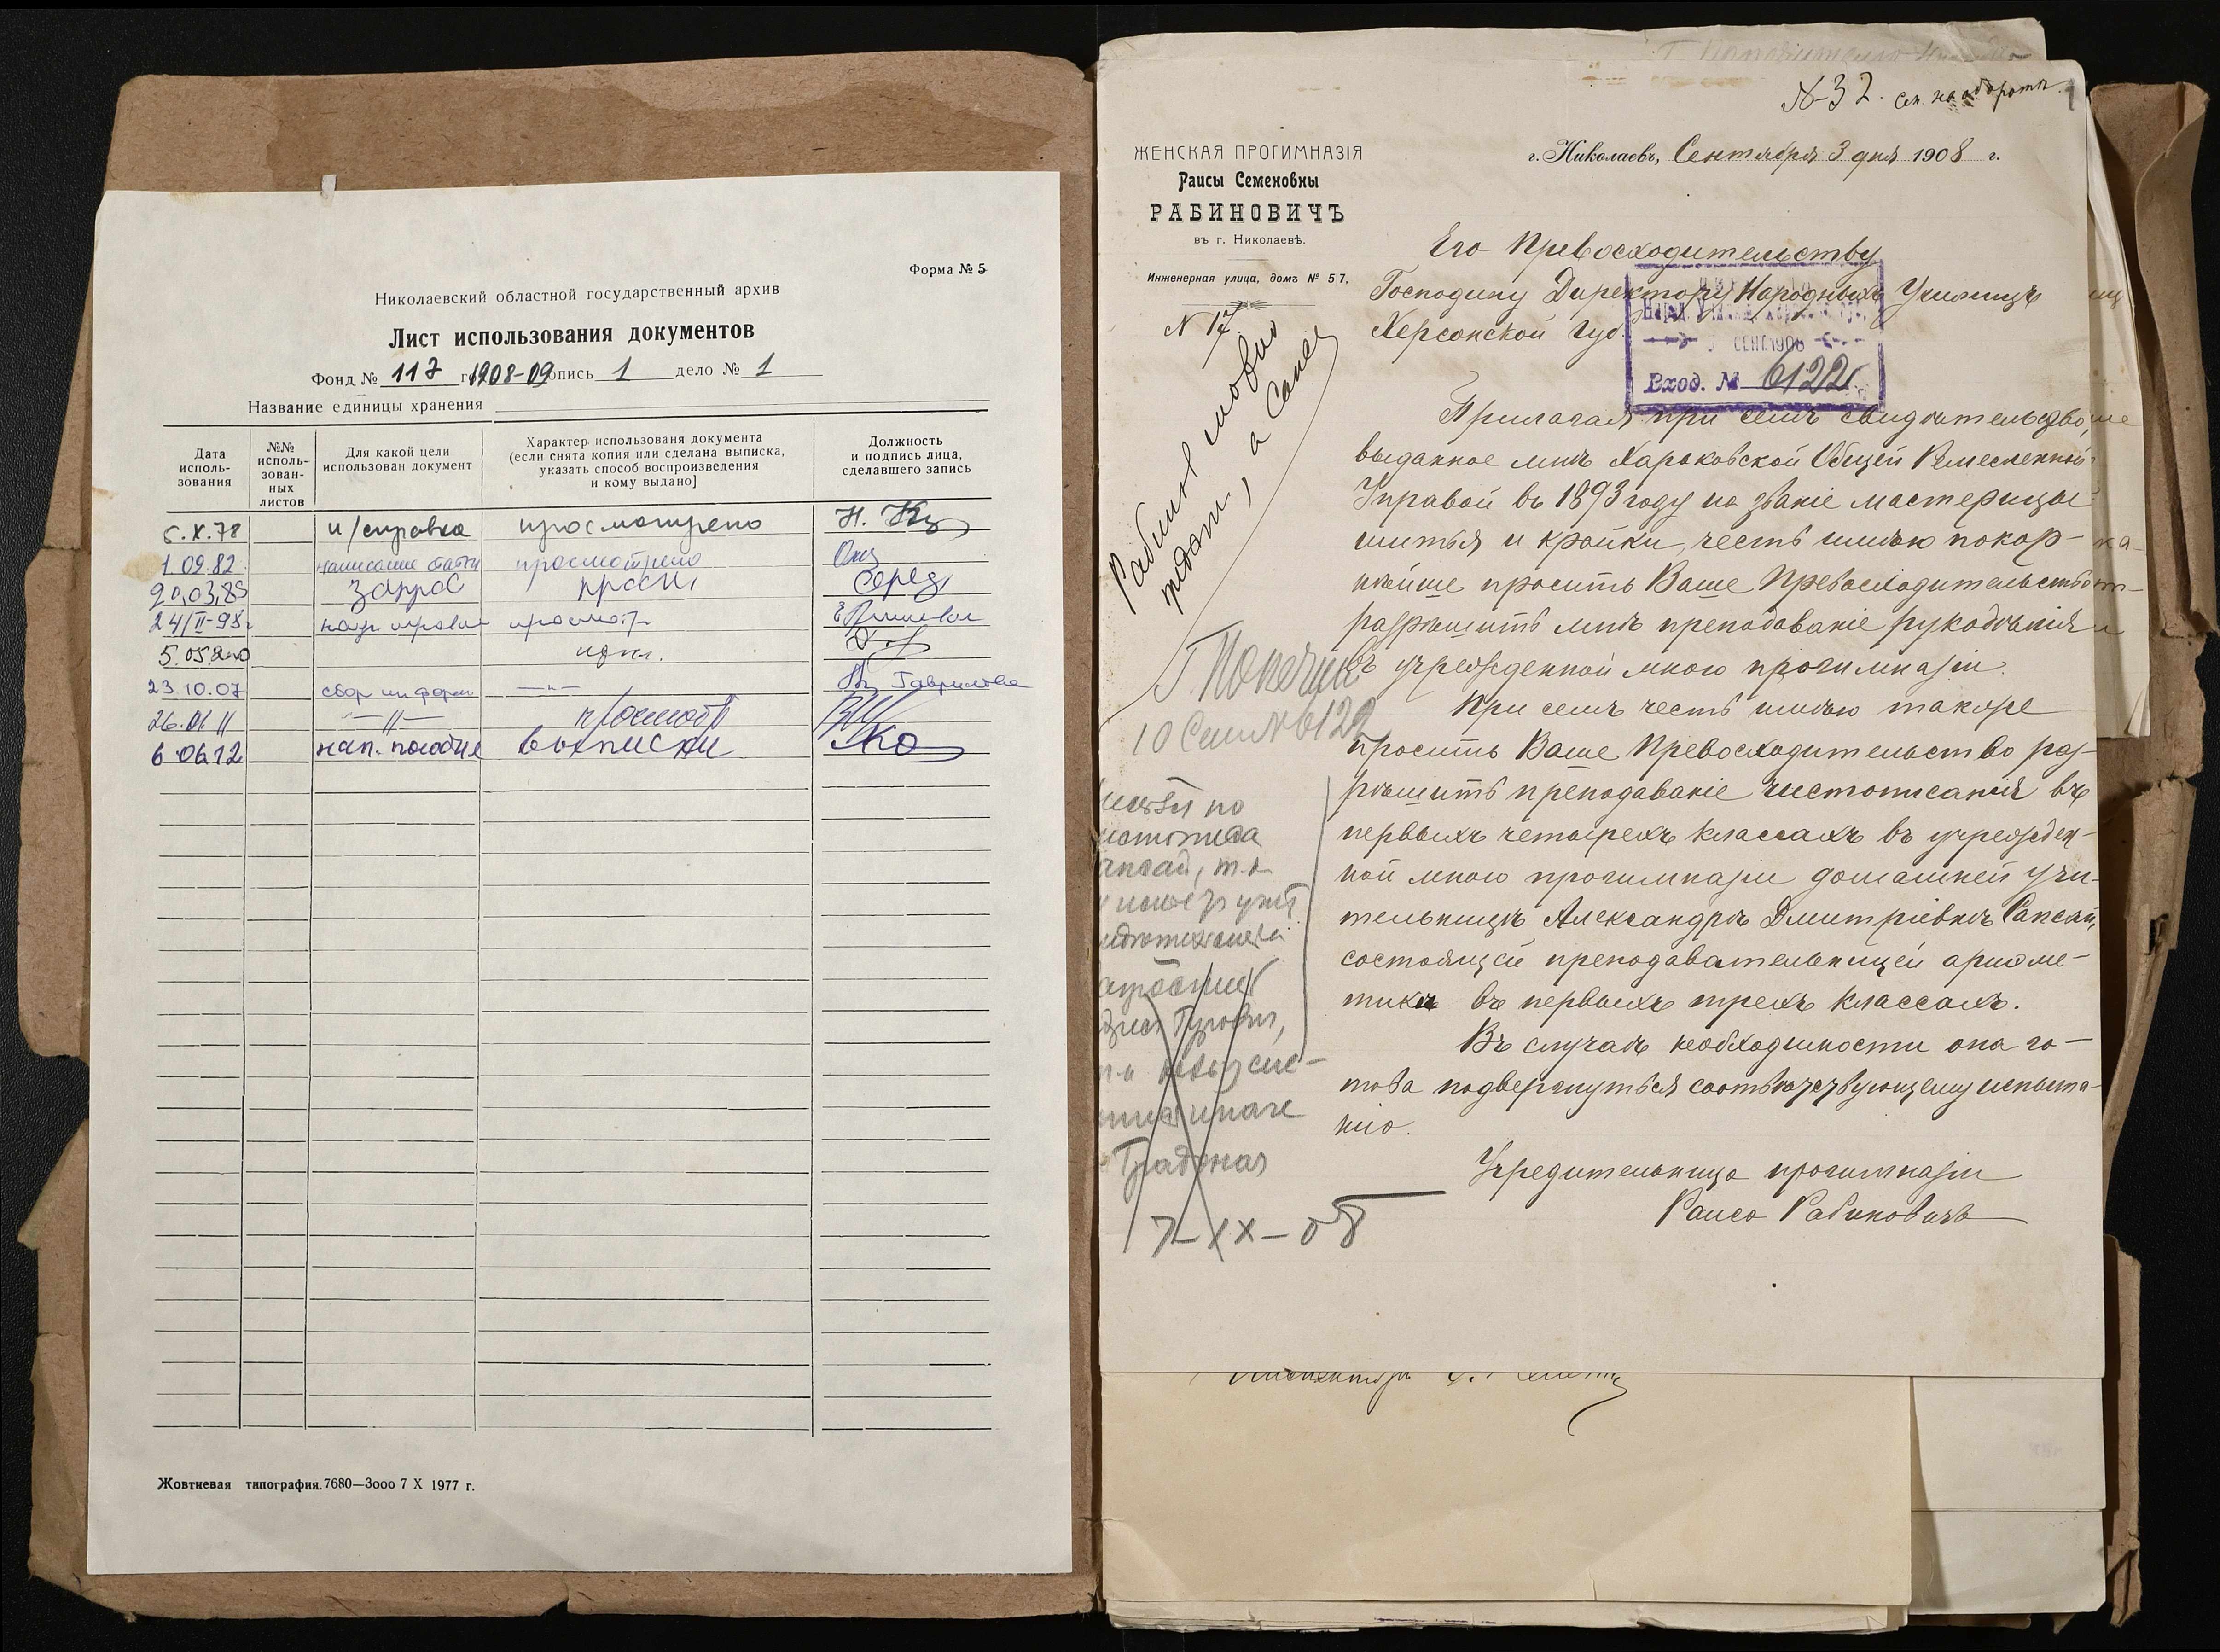 Форма № 5
Николаевский областной государственный архив
Лист использования документов
Фонд № 117 г. 1908-09 опись 1 дело № 1
Название единицы хранения
Дата исполь- зования
№№ исполь- зован- ных листов
Для какой цели использован документ
Характер использованя документа (если снята копия или сделана выписка, указать способ воспроизведения и кому выдано]
Должность и подпись лица, сделавшего запись
5.X.78 и/справка просмотрено Н.
1.09.82 написание статьи просмотрено
20,03,89 запрос просм,
24/II-98г просмотр
5.05.2000
23.10.07 сбор информ —"— Гаврилова
26.01 11 —//— просмотр
6 06.12 нап. пособия выписки
Жовтневая типография. 7680—3000 7 X 1977 г.
№ 32. см. на оборотѣ. 1
ЖЕНСКАЯ ПРОГИМНАЗІЯ
Раисы Семеновны
РАБИНОВИЧЪ
въ г. Николаевѣ.
Инженерная улица, домъ № 57.
N 17.
г. Николаевъ, Сентября 3 дня 1908 г.
Его Превосходительству
Господину Директору Народныхъ Училищъ
Херсонской Губ.
СЕН 1908
Вход. № 6122
Прилагая при семъ свидѣтельство,
выданное мнѣ Харьковской Общей Ремесленной
Управой въ 1893 году на званіе мастерицы
шитья и кройки, честь имѣю покор-
нѣйше просить Ваше Превосходительство
разрѣшить мнѣ преподаваніе рукодѣлія
въ учрежденной мною прогимназіи.
При семъ честь имѣю также
просить Ваше Превосходительство раз-
рѣшить преподаваніе чистописанія въ
первыхъ четырехъ классахъ въ учрежден-
ной мною прогимназіи домашней учи-
тельницѣ Александрѣ Дмитріевнѣ
состоящей преподавательницей ариѳме-
тики въ первыхъ трехъ классахъ.
Въ случаѣ необходимости она го-
това подвергнуться соотвѣтствующему испыта-
нію.
Учредительница прогимназіи
Раиса Рабиновичъ
10 Сент № 6122
7-IX-08